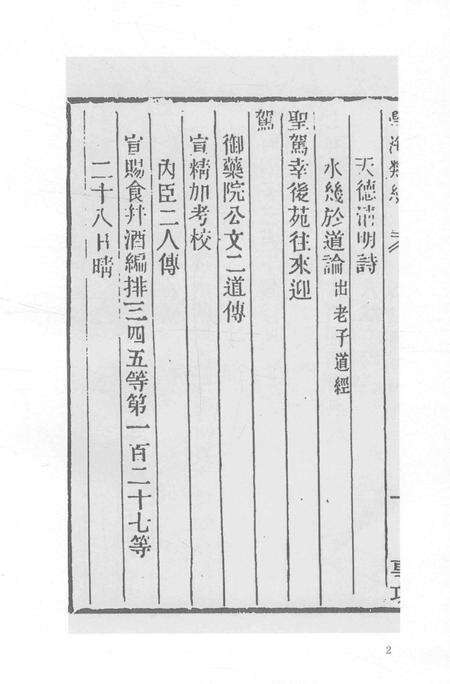 學海類編
天德清明詩
水幾於道論出老子道經
聖駕幸後苑往來迎
駕
御藥院公文二道傳
宣精加考校
內臣二人傳
宣賜食并酒編排三四五等第一百二十七等
二十八日晴
2